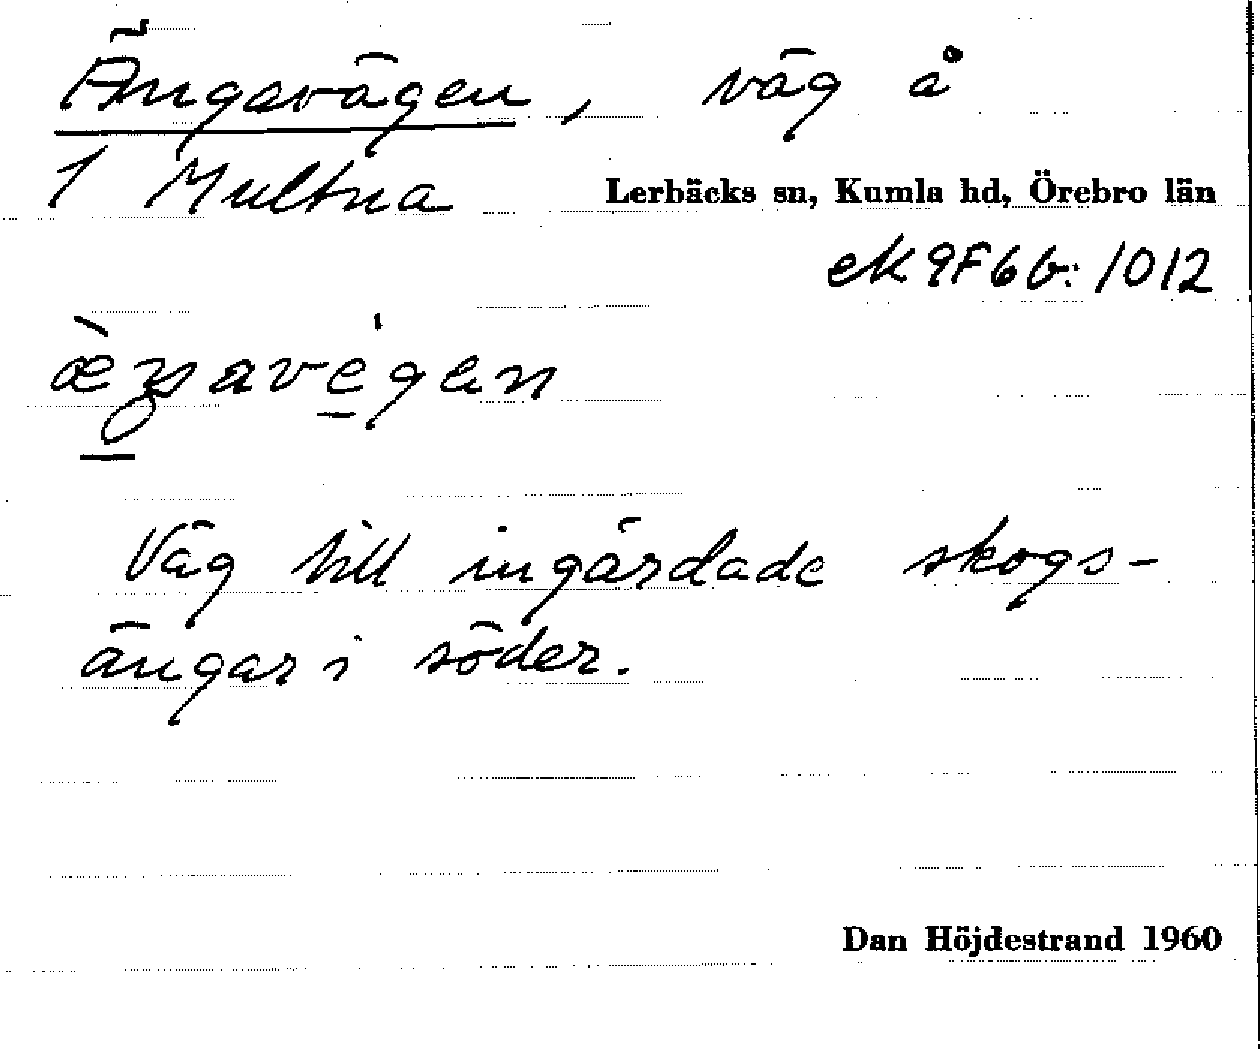 Ängavägen, väg å
1 Multna Lerbäcks sn, Kumla hd, Örebro län
ek 9F6b: 1012
Väg till ingärdade skogs-
ängar i söder.
Dan Höjdestrand 1960